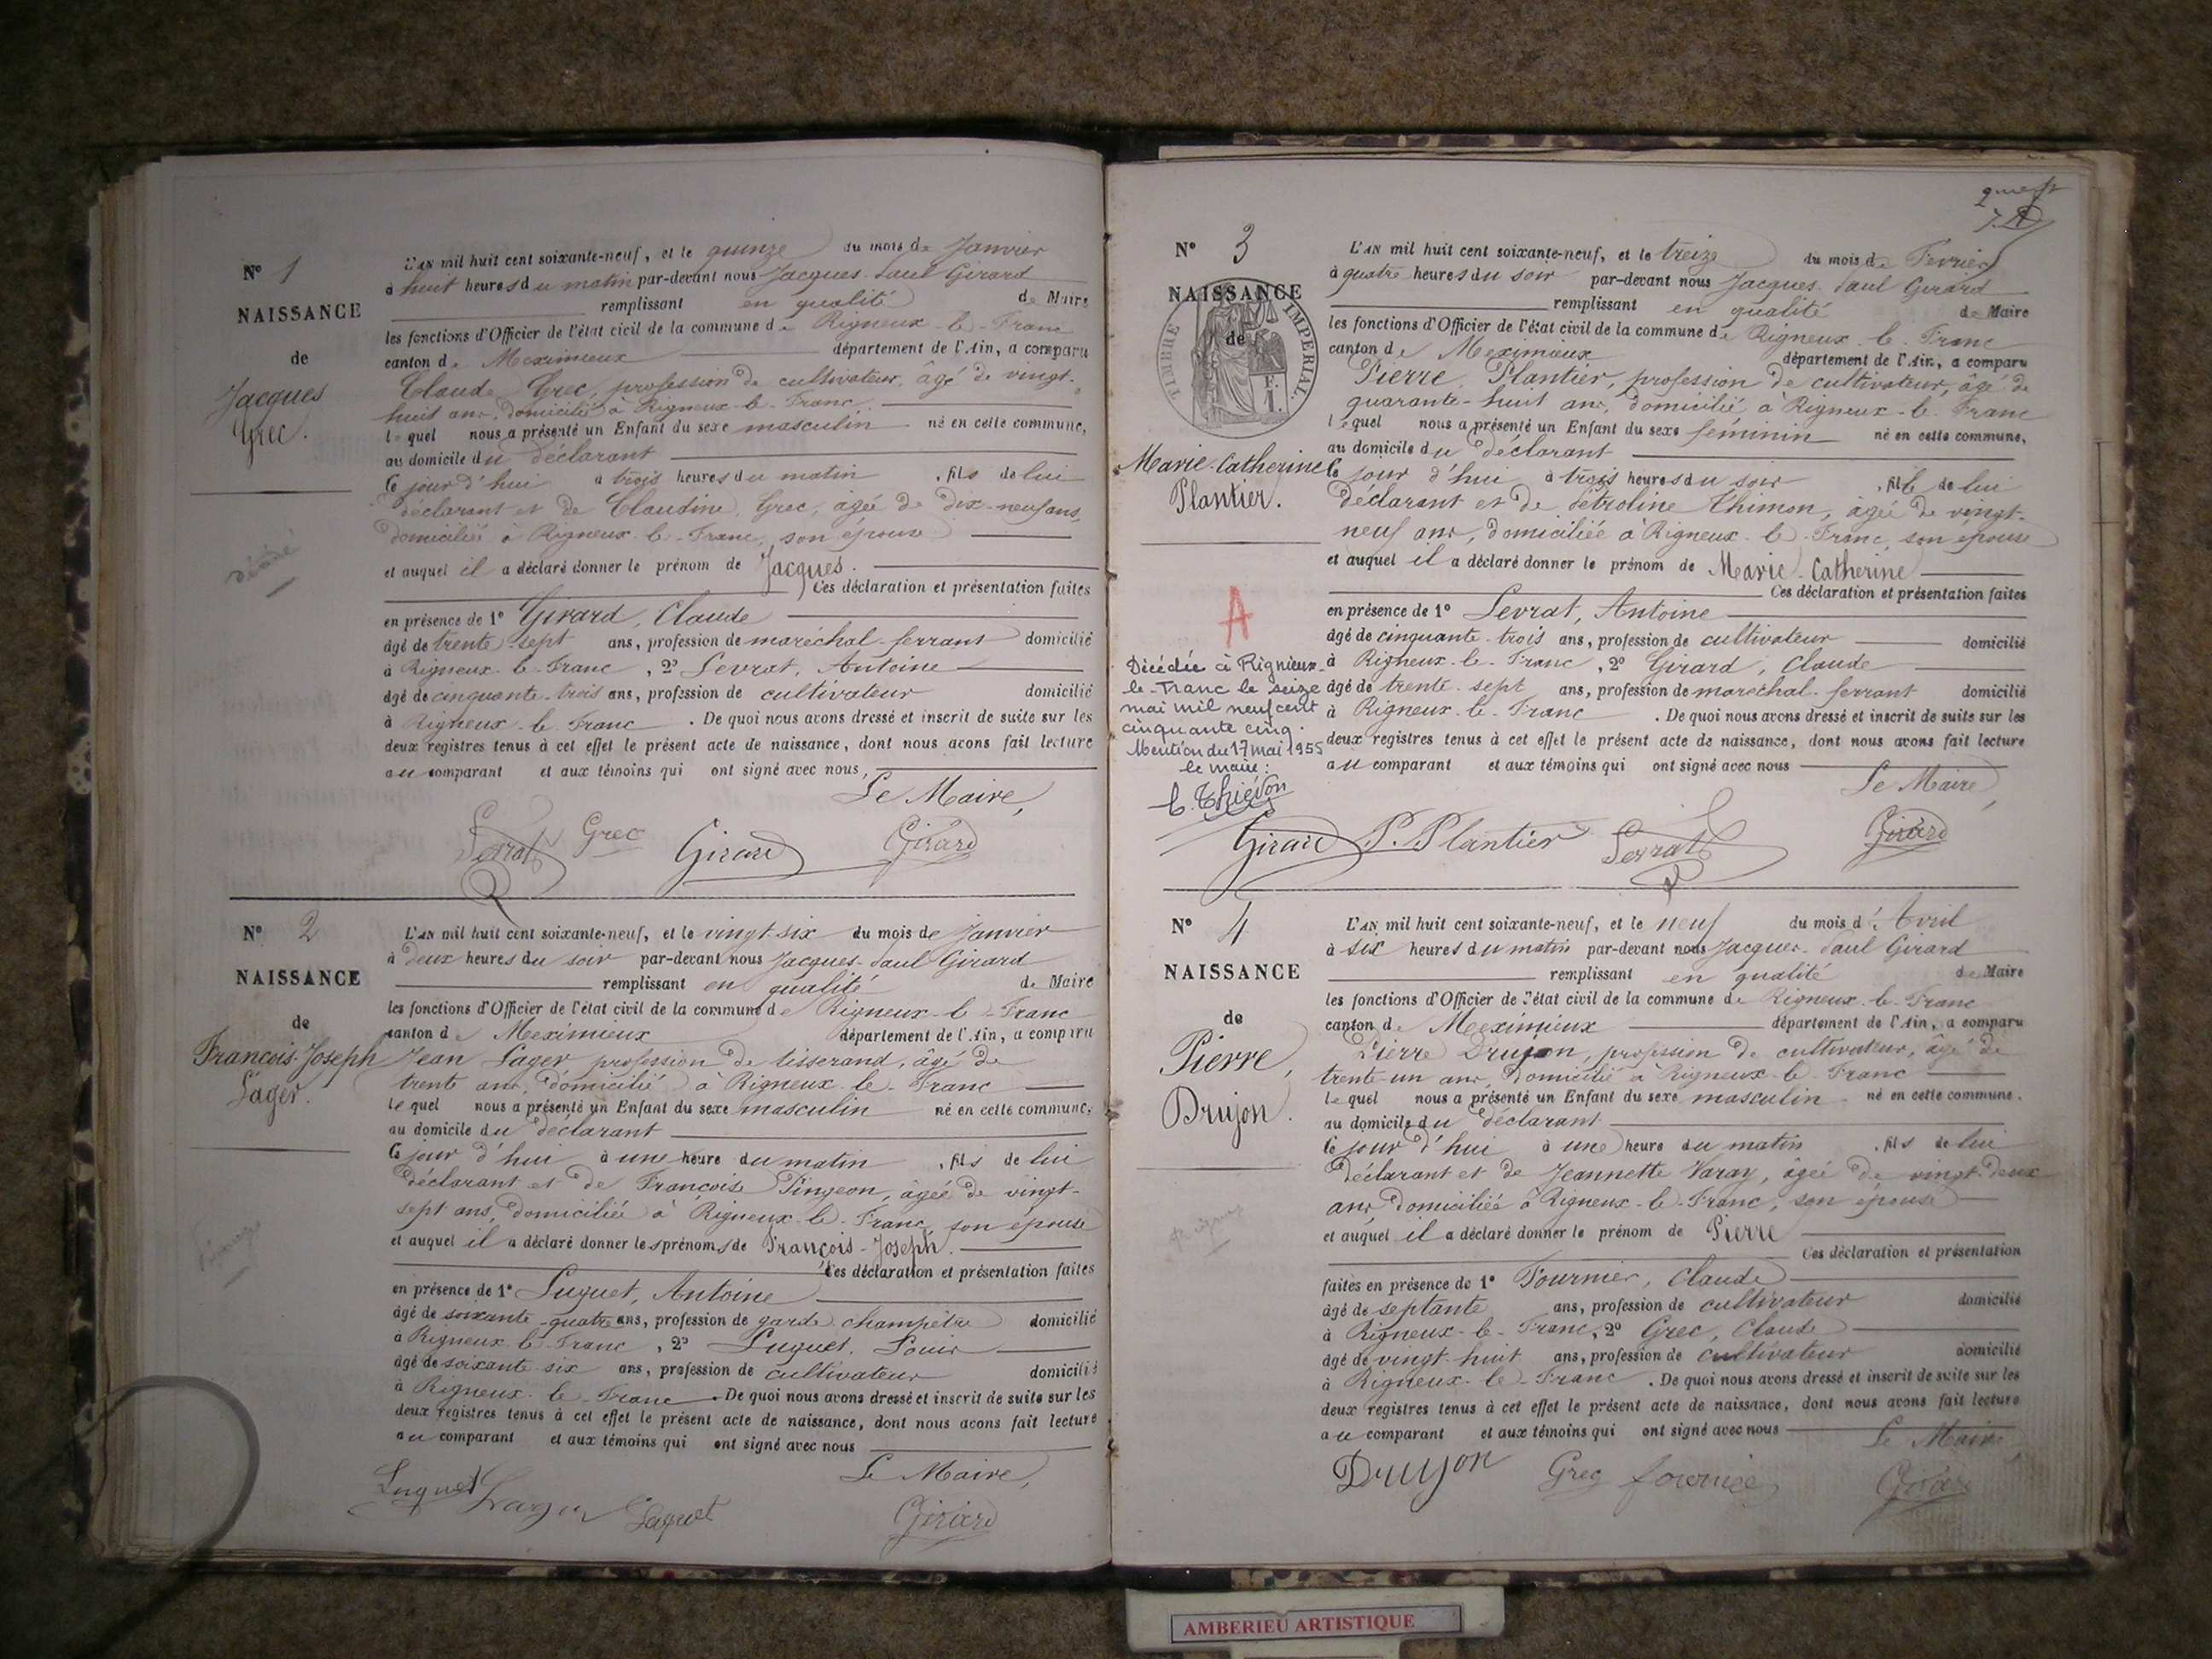 N° 1
NAISSANCE
de
Jacques
Grec.
décédé
L'AN mil huit cent soixante-neuf, et le quinze du mois de Janvier
à huit heures du matin par-devant nous Jacques-Paul Girard
remplissant en qualité de Maire
les fonctions d'Officier de l'état civil de la commune de Rigneux-le-Franc
canton de Meximieux département de l'Ain, a comparu
Claude Grec, profession de cultivateur, âgé de vingt-
huit ans, domicilié à Rigneux-le-Franc
lequel nous a présenté un Enfant du sexe masculin né en cette commune,
au domicile du déclarant
ce jour d'hui à trois heures du matin, fils de lui
déclarant et de Claudine Grec, âgée de dix-neuf ans,
domiciliée à Rigneux-le-Franc, son épouse
et auquel il a déclaré donner le prénom de Jacques.
Ces déclaration et présentation faites
en présence de 1° Girard, Claude
âgé de trente-sept ans, profession de maréchal-ferrant domicilié
à Rigneux-le-Franc, 2° Levrat, Antoine
âgé de cinquante-trois ans, profession de cultivateur domicilié
à Rigneux-le-Franc. De quoi nous avons dressé et inscrit de suite sur les
deux registres tenus à cet effet le présent acte de naissance, dont nous avons fait lecture
au comparant et aux témoins qui ont signé avec nous,
Le Maire,
Levrat Grec Girard Girard
N° 2
NAISSANCE
de
François-Joseph
Lager.
L'AN mil huit cent soixante-neuf, et le vingt-six du mois de Janvier
à deux heures du soir par-devant nous Jacques-Paul Girard
remplissant en qualité de Maire
les fonctions d'Officier de l'état civil de la commune de Rigneux-le-Franc
canton de Meximieux département de l'Ain, a comparu
Jean Lager profession de tisserand, âgé de
trente ans, domicilié à Rigneux-le-Franc
lequel nous a présenté un Enfant du sexe masculin né en cette commune,
au domicile du déclarant
ce jour d'hui à une heure du matin, fils de lui
déclarant et de Françoise Pingeon, âgée de vingt-
sept ans, domiciliée à Rigneux-le-Franc, son épouse
et auquel il a déclaré donner les prénoms de François-Joseph.
Ces déclaration et présentation faites
en présence de 1° Luguet, Antoine
âgé de soixante-quatre ans, profession de garde champêtre domicilié
à Rigneux-le-Franc, 2° Luguet, Louis
âgé de soixante-six ans, profession de cultivateur domicilié
à Rigneux-le-Franc. De quoi nous avons dressé et inscrit de suite sur les
deux registres tenus à cet effet le présent acte de naissance, dont nous avons fait lecture
au comparant et aux témoins qui ont signé avec nous
Le Maire,
Luguet Lager Luguet Girard
N° 3
NAISSANCE
de
TIMBRE IMPÉRIAL
Marie-Catherine
Plantier.
A
Décédée à Rignieux-
le-Franc le seize
mai mil neuf cent
cinquante cinq.
Mention du 17 mai 1955
le maire:
L'AN mil huit cent soixante-neuf, et le treize du mois de Février
à quatre heures du soir par-devant nous Jacques-Paul Girard
remplissant en qualité de Maire
les fonctions d'Officier de l'état civil de la commune de Rigneux-le-Franc
canton de Meximieux département de l'Ain, a comparu
Pierre Plantier, profession de cultivateur, âgé de
quarante-huit ans, domicilié à Rigneux-le-Franc
lequel nous a présenté un Enfant du sexe féminin né en cette commune,
au domicile du déclarant
ce jour d'hui à trois heures du soir, fille de lui
déclarant et de Pétroline Thimon, âgée de vingt-
neuf ans, domiciliée à Rigneux-le-Franc, son épouse
et auquel il a déclaré donner le prénom de Marie-Catherine
Ces déclaration et présentation faites
en présence de 1° Levrat, Antoine
âgé de cinquante-trois ans, profession de cultivateur domicilié
à Rigneux-le-Franc, 2° Girard, Claude
âgé de trente-sept ans, profession de maréchal-ferrant domicilié
à Rigneux-le-Franc. De quoi nous avons dressé et inscrit de suite sur les
deux registres tenus à cet effet le présent acte de naissance, dont nous avons fait lecture
au comparant et aux témoins qui ont signé avec nous
Le Maire,
Girard P. Plantier Levrat Girard
N° 4
NAISSANCE
de
Pierre,
Drujon.
L'AN mil huit cent soixante-neuf, et le neuf du mois d'Avril
à six heures du matin par-devant nous Jacques-Paul Girard
remplissant en qualité de Maire
les fonctions d'Officier de l'état civil de la commune de Rigneux-le-Franc
canton de Meximieux département de l'Ain, a comparu
Pierre Drujon, profession de cultivateur, âgé de
trente-un ans, domicilié à Rigneux-le-Franc
lequel nous a présenté un Enfant du sexe masculin né en cette commune.
au domicile du déclarant
ce jour d'hui à une heure du matin, fils de lui
déclarant et de Jeannette Varay, âgée de vingt-deux
ans, domiciliée à Rigneux-le-Franc, son épouse
et auquel il a déclaré donner le prénom de Pierre
Ces déclaration et présentation
faites en présence de 1° Fournier, Claude
âgé de septante ans, profession de cultivateur domicilié
à Rigneux-le-Franc, 2° Grec, Claude
âgé de vingt-huit ans, profession de cultivateur domicilié
à Rigneux-le-Franc. De quoi nous avons dressé et inscrit de suite sur les
deux registres tenus à cet effet le présent acte de naissance, dont nous avons fait lecture
au comparant et aux témoins qui ont signé avec nous
Le Maire
Drujon Grec fournier Girard
AMBERIEU ARTISTIQUE